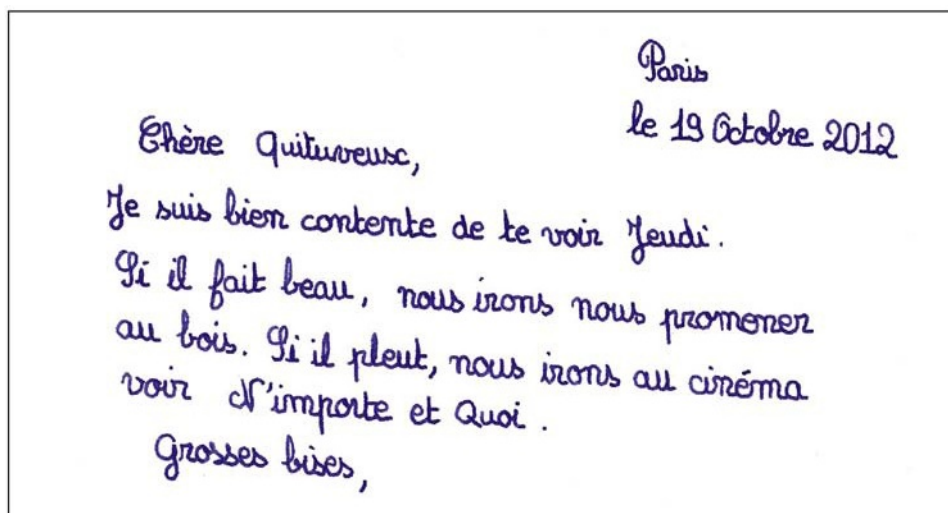 Paris
le 19 Octobre 2012
Chère Quituveuse,
Je suis bien contente de te voir Jeudi.
Si il fait beau, nous irons nous promener
au bois. Si il pleut, nous irons au cinéma
voir N'importe et Quoi.
Grosses bises,